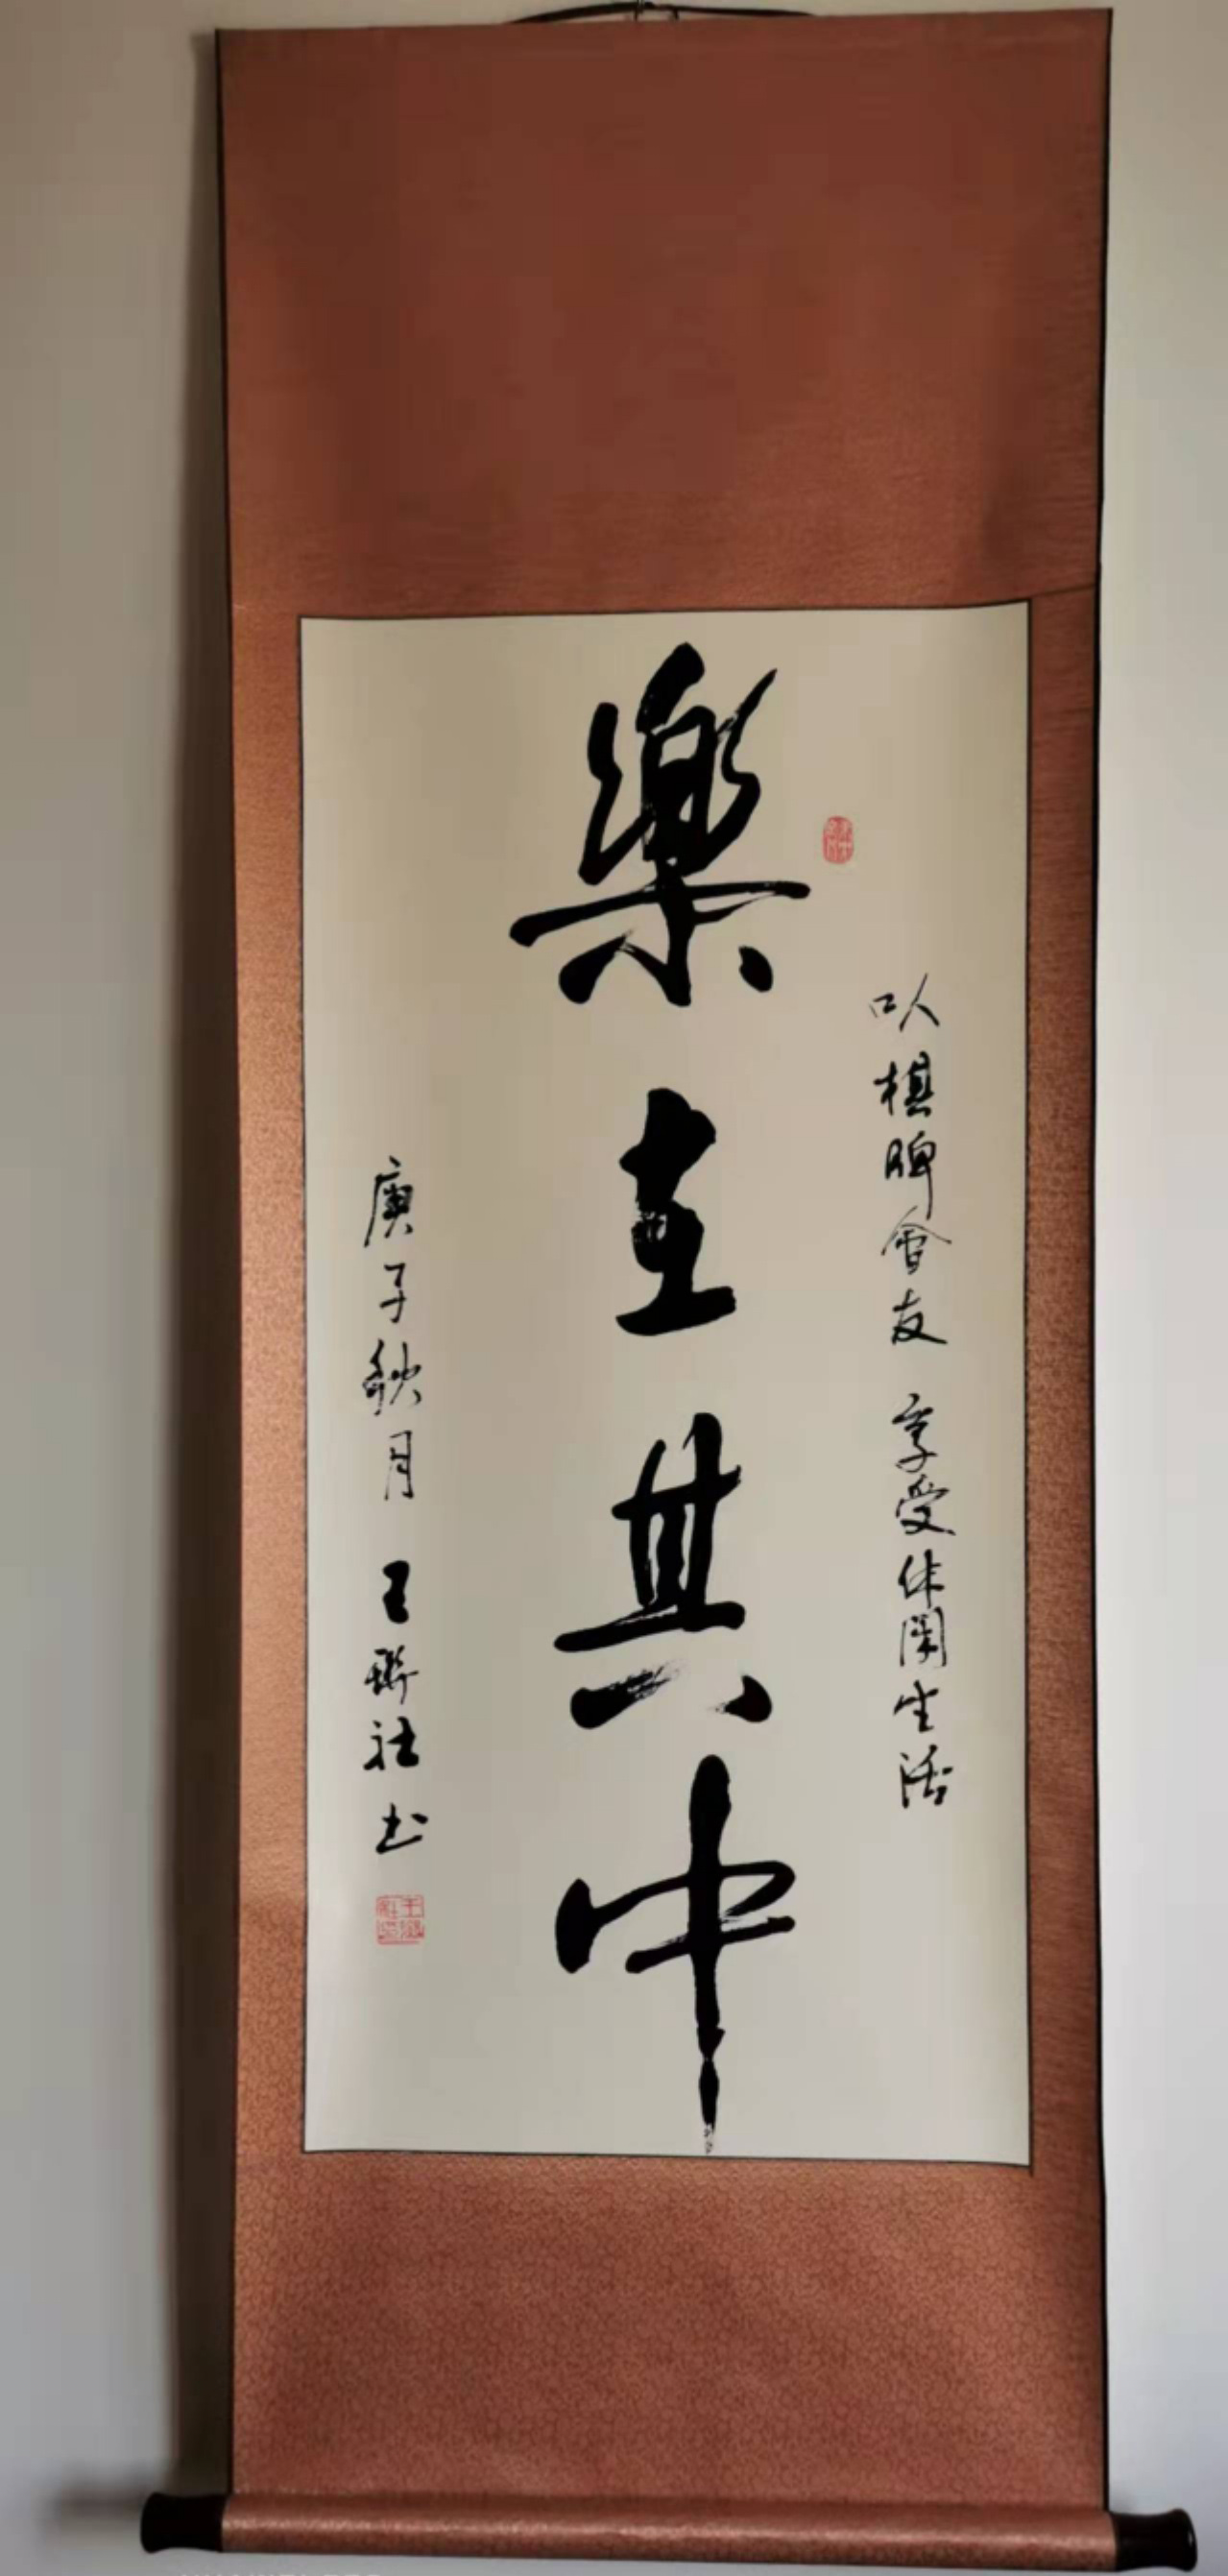 以棋牌會友 享受休閑生活
樂在其中
庚子秋月 王聯社書